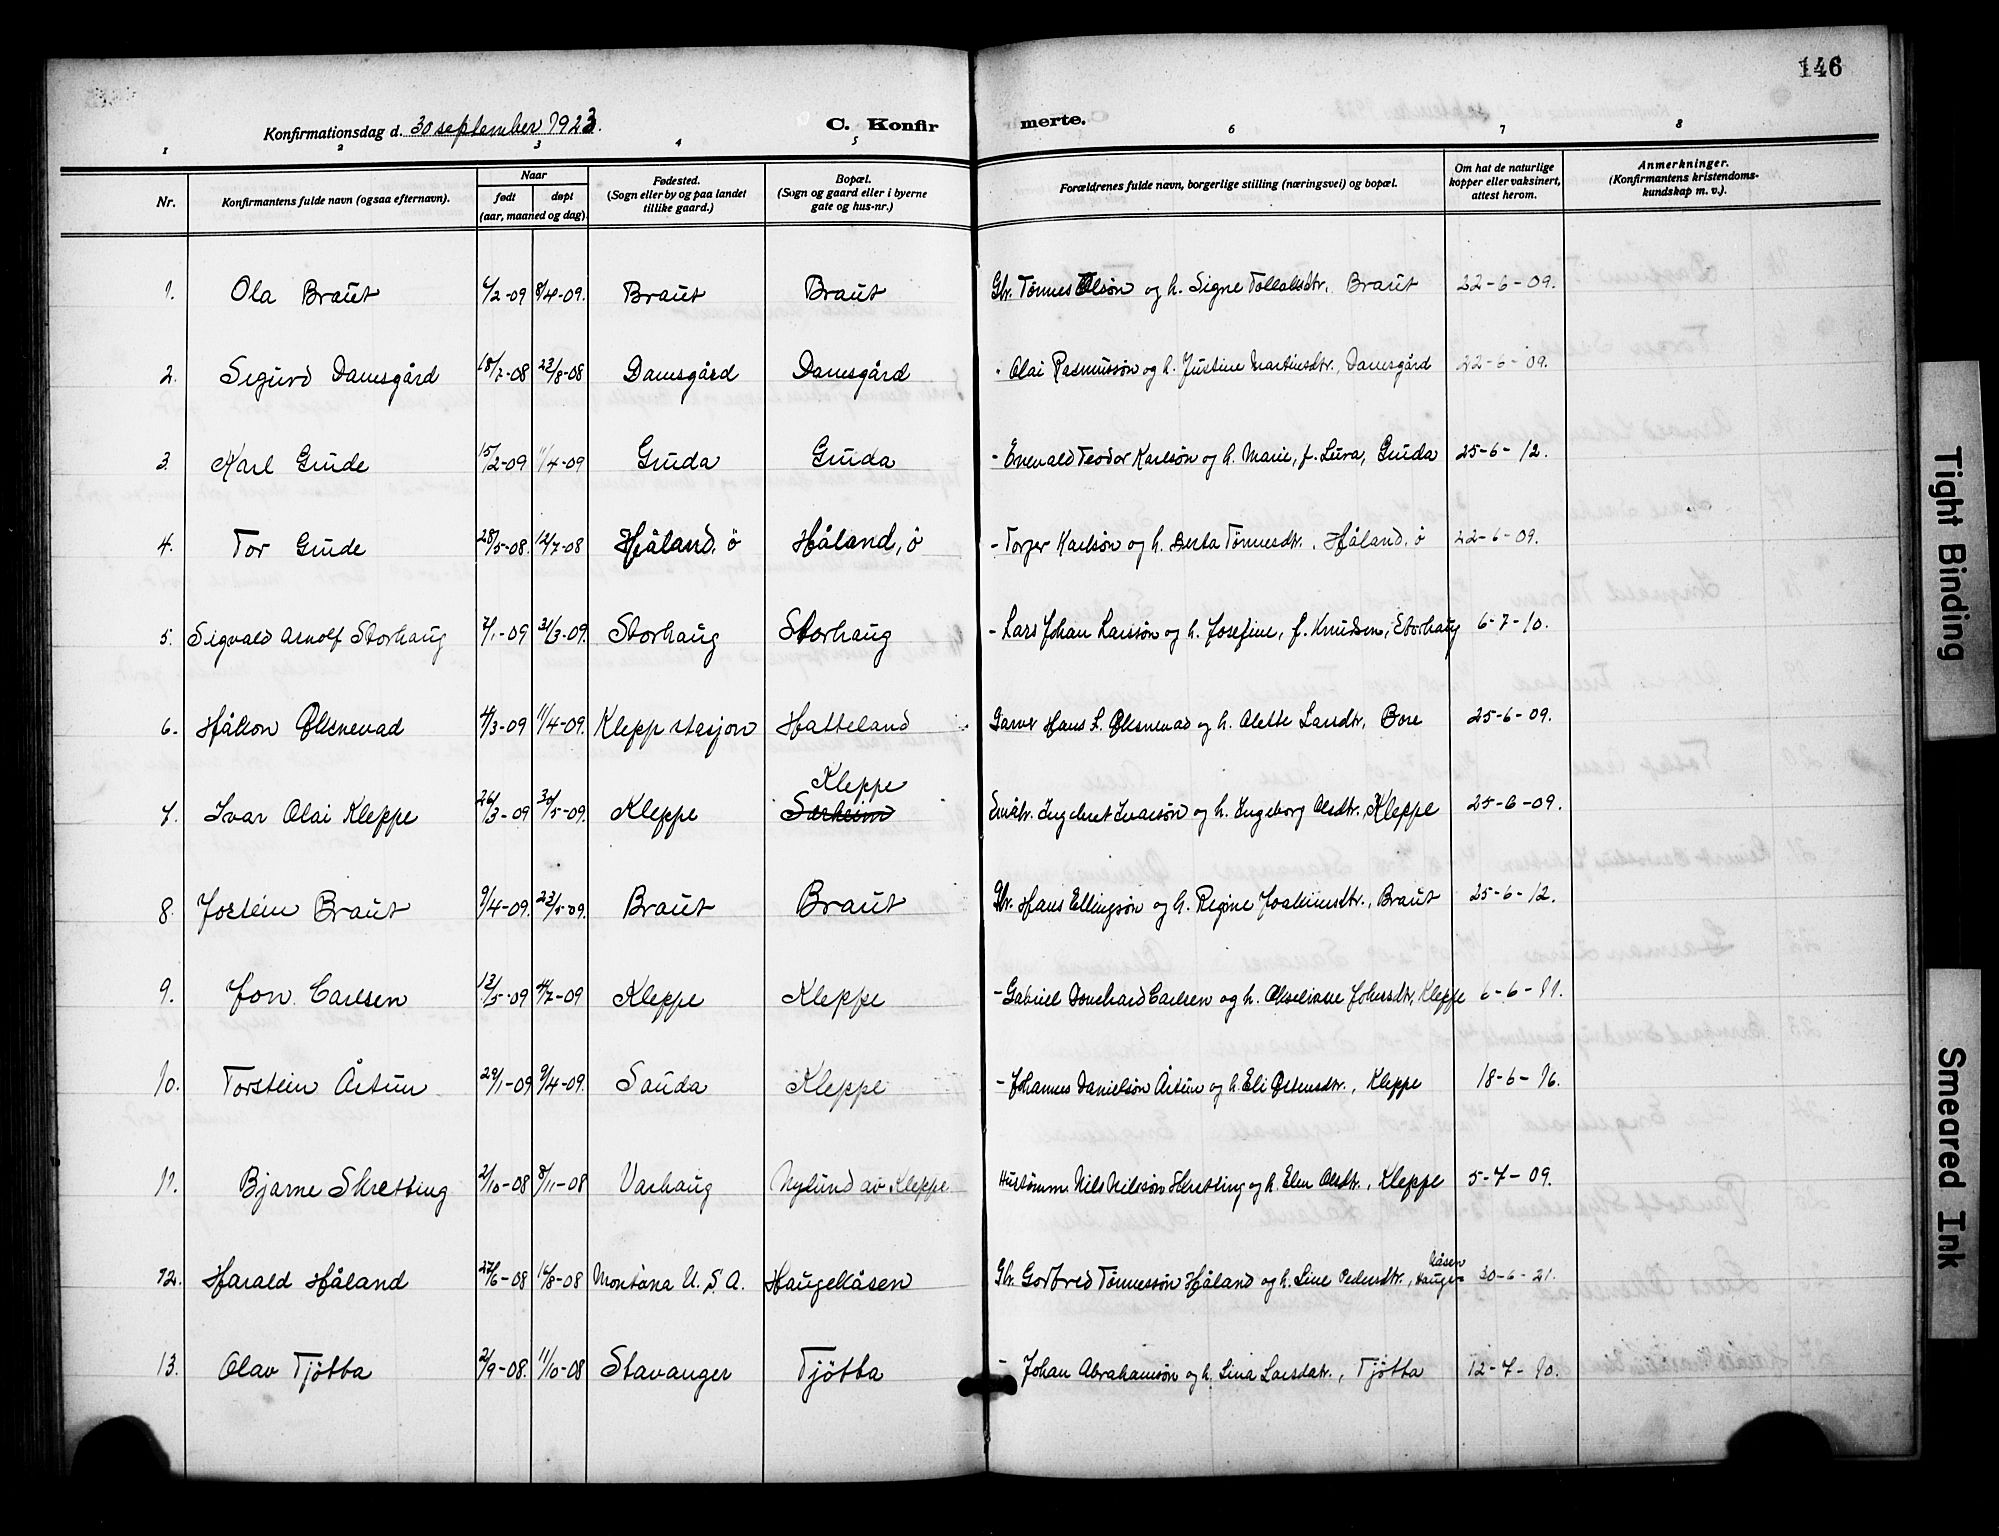 146
Konfirmationsdag d. 30 september 1923.
C. Konfirmerte.
1 2 3 4 5 6 7 8
Nr. Konfirmantens fulde navn (ogsaa efternavn). Naar født døpt (aar, maaned og dag). Fødested. (Sogn eller by og paa landet tillike gaard.) Bopæl. (Sogn og gaard eller i byerne gate og hus-nr.) Forældrenes fulde navn, borgerlige stilling (næringsvei) og bopæl. Om hat de naturlige kopper eller vaksinert, attest herom. Anmerkninger. (Konfirmantens kristendoms-kundskap m. v.).
1. Ola Braut 4/2-09 8/4-09. Braut Braut Gbr. Tønnes Olsøn og h. Signe Tollaksdtr. Braut 22-6-09.
2. Sigurd Damsgård 18/7-08 23/8-08 Damsgård Damsgård - Olai Rasmussøn og h. Justine Martinsdtr., Damsgård 22-6-09.
3. Karl Grude 15/2-09 11/4-09 Gruda Gruda - Enevald Teodor Karlsøn og h. Marie, f. Lura, Gruda 25-6-12.
4. Tor Grude 28/5-08. 12/7-08 Håland, ö Håland, ö - Torger Karlsøn og h. Berta Tønnesdtr. Håland, ö 22-6-09.
5. Sigvald Arnolf Storhaug 7/1-09 31/3-09. Storhaug Storhaug - Lars Johan Larssøn og h. Josefine, f. Knudsen, Storhaug 6-7-10.
6. Håkon Ølsnevad 4/3-09 11/4-09. Klepp stasjon Hatteland Garver Hans L. Ølsnevad og h. Olette Larsdtr, Bore 25-6-09.
7. Ivar Olai Kleppe 26/3-09 30/5-09. Kleppe Kleppe Særheim Småbr. Ingebret Ivarsøn og h. Ingeborg Olsdtr., Kleppe 25-6-09.
8. Jostein Braut 9/4-09. 23/5-09. Braut Braut Gbr. Hans Ellingsøn og h. Regine Joakimsdtr., Braut 25-6-12.
9. Jon Carlsen 13/5-09 4/7-09 Kleppe Kleppe - Gabriel Carlsen og h. Akseliane Johnsdtr, Kleppe 6-6-11.
10. Torstein Årtun 29/1-09 9/4-09. Sauda Kleppe - Johannes Danielsøn Årtun og h. Eli Østensdtr., Kleppe 18-6-16.
11. Bjarne Skretting 2/10-08 8/11-08 Varhaug Nylund av Kleppe Hustømm. Nils Nilssøn Skretting og h. Elen Olsdtr., Kleppe 5-7-09.
12. Harald Håland 27/6-08 16/8-08 Montana U. S. A. Haugekåsen Gbr. Gotfred Tønnessøn Håland og h. Line Pedersdtr., Haugekåsen 30-6-21.
13. Olav Tjötta 2/9-08. 11/10-08 Stavanger Tjötta - Johan Abrahamsøn og h. Lina Larsdatr., Tjötta 12-7-10.
Tight Binding
Smeared Ink